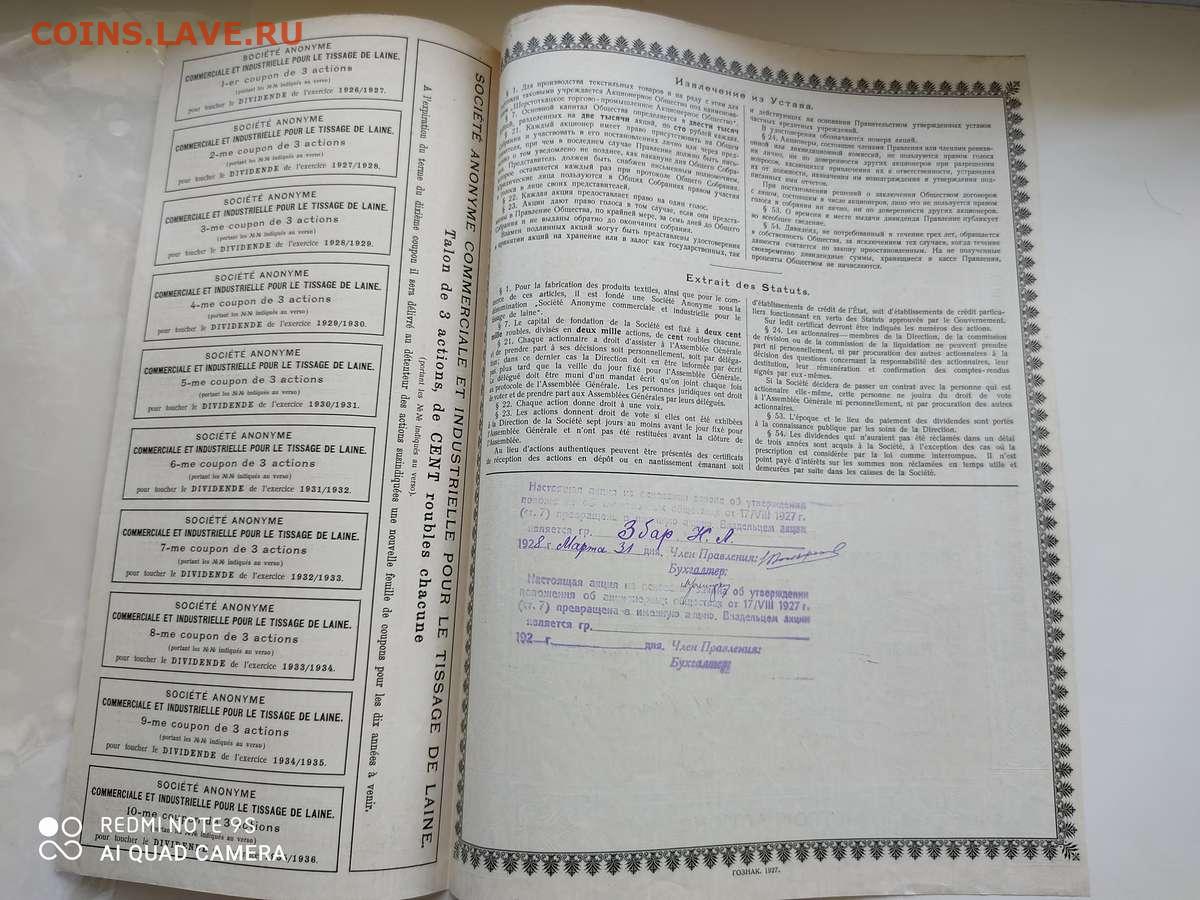 COINS.LAVE.RU
SOCIÉTÉ ANONYME
COMMERCIALE ET INDUSTRIELLE POUR LE TISSAGE DE LAINE.
1-er coupon de 3 actions
(portant les №№ indiqués au verso)
pour toucher le DIVIDENDE de l'exercice 1926/1927.
SOCIÉTÉ ANONYME
COMMERCIALE ET INDUSTRIELLE POUR LE TISSAGE DE LAINE.
2-me coupon de 3 actions
(portant les №№ indiqués au verso)
pour toucher le DIVIDENDE de l'exercice 1927/1928.
SOCIÉTÉ ANONYME
COMMERCIALE ET INDUSTRIELLE POUR LE TISSAGE DE LAINE.
3-me coupon de 3 actions
(portant les №№ indiqués au verso)
pour toucher le DIVIDENDE de l'exercice 1928/1929.
SOCIÉTÉ ANONYME
COMMERCIALE ET INDUSTRIELLE POUR LE TISSAGE DE LAINE.
4-me coupon de 3 actions
(portant les №№ indiqués au verso)
pour toucher le DIVIDENDE de l'exercice 1929/1930.
SOCIÉTÉ ANONYME
COMMERCIALE ET INDUSTRIELLE POUR LE TISSAGE DE LAINE.
5-me coupon de 3 actions
(portant les №№ indiqués au verso)
pour toucher le DIVIDENDE de l'exercice 1930/1931.
SOCIÉTÉ ANONYME
COMMERCIALE ET INDUSTRIELLE POUR LE TISSAGE DE LAINE.
6-me coupon de 3 actions
(portant les №№ indiqués au verso)
pour toucher le DIVIDENDE de l'exercice 1931/1932.
SOCIÉTÉ ANONYME
COMMERCIALE ET INDUSTRIELLE POUR LE TISSAGE DE LAINE.
7-me coupon de 3 actions
(portant les №№ indiqués au verso)
pour toucher le DIVIDENDE de l'exercice 1932/1933.
SOCIÉTÉ ANONYME
COMMERCIALE ET INDUSTRIELLE POUR LE TISSAGE DE LAINE.
8-me coupon de 3 actions
(portant les №№ indiqués au verso)
pour toucher le DIVIDENDE de l'exercice 1933/1934.
SOCIÉTÉ ANONYME
COMMERCIALE ET INDUSTRIELLE POUR LE TISSAGE DE LAINE.
9-me coupon de 3 actions
(portant les №№ indiqués au verso)
pour toucher le DIVIDENDE de l'exercice 1934/1935.
SOCIÉTÉ ANONYME
COMMERCIALE ET INDUSTRIELLE POUR LE TISSAGE DE LAINE.
10-me coupon de 3 actions
indiqués au verso)
pour toucher le /1936.
SOCIÉTÉ ANONYME COMMERCIALE ET INDUSTRIELLE POUR LE TISSAGE DE LAINE.
Talon de 3 actions, de CENT roubles chacune
(portant les №№ indiqués au verso).
A l'expiration du terme du dixième coupon il sera délivré au détenteur des actions susindiquées une nouvelle feuille de coupons pour les dix années à venir.
Извлечение из Устава.
§ 1. Для производства текстильных товаров и на ряду с этим для
таковыми учреждается Акционерное Общество под наименова-
„Шерстоткацкое торгово-промышленное Акционерное Общество".
7. Основной капитал Общества определяется в двести тысяч
разделенных на две тысячи акций, по сто рублей каждая.
21. Каждый акционер имеет право присутствовать на Общем
и участвовать в его постановлениях лично или через пред-
при чем в последнем случае Правление должно быть пись-
о том уведомлено не позднее, как накануне дня Общего Собра-
Представитель должен быть снабжен письменным полномочием,
остается каждый раз при протоколе Общего Собрания.
лица пользуются в Общих Собраниях правом участия
голоса в лице своих представителей.
§ 22. Каждая акция предоставляет право на один голос.
§ 23. Акции дают право голоса в том случае, если они предъ-
в Правление Общества, по крайней мере, за семь дней до Общего
Собрания и не выданы обратно до окончания собрания.
Взамен подлинных акций могут быть предъявлены удостоверения
принятии акций на хранение или в залог как государственных, так
и действующих на основании Правительством утвержденных уставов
частных кредитных учреждений.
В удостоверении обозначаются номера акций.
§ 24. Акционеры, состоящие членами Правления или членами ревизи-
онной или ликвидационной комиссий, не пользуются правом голоса
ни лично, ни по доверенности других акционеров при разрешении
вопросов, касающихся привлечения их к ответственности, устранения
от должности, назначения им вознаграждения и утверждения под-
писанных ими отчетов.
При постановлении решений о заключении Обществом договоров
с лицом, состоящим в числе акционеров, лицо это не пользуется правом
голоса в собрании ни лично, ни по доверенности других акционеров.
§ 53. О времени и месте выдачи дивиденда Правление публикует
во всеобщее сведение.
§ 54. Дивиденд, не потребованный в течение трех лет, обращается
в собственность Общества, за исключением тех случаев, когда течение
давности считается по закону приостановленным. На не полученные
своевременно дивидендные суммы, хранящиеся в кассе Правления,
проценты Обществом не начисляются.
Extrait des Statuts.
§ 1. Pour la fabrication des produits textiles, ainsi que pour le com-
merce de ces articles, il est fondé une Société Anonyme sous la
dénomination „Société Anonyme commerciale et industrielle pour le
tissage de laine".
§ 7. Le capital de fondation de la Société est fixé à deux cent
mille roubles, divisés en deux mille actions, de cent roubles chacune.
§ 21. Chaque actionnaire a droit d'assister à l'Assemblée Générale
et de prendre part à ses décisions soit personnellement, soit par déléga-
dans ce dernier cas la Direction doit en être informée par écrit
pas plus tard que la veille du jour fixé pour l'Assemblée Générale.
Le délégué doit être muni d'un mandat écrit qu'on joint chaque fois
au protocole de l'Assemblée Générale. Les personnes juridiques ont droit
de voter et de prendre part aux Assemblées Générales par leurs délégués.
§ 22. Chaque action donne droit à une voix.
§ 23. Les actions donnent droit de vote si elles ont été exhibées
à la Direction de la Société sept jours au moins avant le jour fixé pour
l'Assemblée Générale et n'ont pas été restituées avant la clôture de
l'Assemblée.
Au lieu d'actions authentiques peuvent être présentés des certificats
de réception des actions en dépôt ou en nantissement émanant soit
d'établissements de crédit de l'État, soit d'établissements de crédit particu-
liers fonctionnant en vertu des Statuts approuvés par le Gouvernement.
Sur ledit certificat devront être indiqués les numéros des actions.
§ 24. Les actionnaires—membres de la Direction, de la commission
de révision ou de la commission de la liquidation ne peuvent prendre
part ni personnellement, ni par procuration des autres actionnaires à la
décision des questions concernant la responsabilité des actionnaires, leur
destitution, leur rémunération et confirmation des comptes-rendus
signés par eux-mêmes.
Si la Société décidera de passer un contrat avec la personne qui est
actionnaire elle-même, cette personne ne jouira du droit de vote
à l'Assemblée Générale ni personnellement, ni par procuration des autres
actionnaires.
§ 53. L'époque et le lieu du paiement des dividendes sont portés
à la connaissance publique par les soins de la Direction.
§ 54. Les dividendes qui n'auraient pas été réclamés dans un délai
de trois années sont acquis à la Société, à l'exception des cas où la
prescription est considérée par la loi comme interrompue. Il n'est
point payé d'intérêts sur les sommes non réclamées en temps utile et
demeurées par suite dans les caisses de la Société.
Настоящая акция на основании закона об утверждении
общества от 17/VIII 1927 г.
(ст. 7) превращена Владельцем акции
является гр. Збар Н. Л.
1928 г Марта 31 дня. Член Правления:
Бухгалтер:
Настоящая акция на об утверждении
положения об акционерных обществах от 17/VIII 1927 г.
(ст. 7) превращена в именную акцию. Владельцем акции
является гр.
192 г. дня. Член Правления:
Бухгалтер:
ГОЗНАК. 1927.
REDMI NOTE 9S
AI QUAD CAMERA